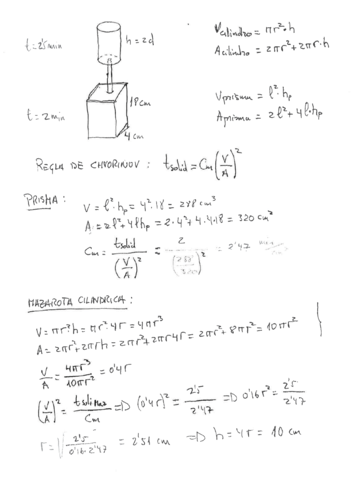 Vcilindro = πr²·h
t = 2'5 min
h = 2d
Acilindro = 2πr² + 2πr·h
18 cm
Vprisma = l²·hp
t = 2 min
Aprisma = 2l² + 4l·hp
4 cm
REGLA DE CHVORINOV : tsolid = Cm (V/A)²
PRISMA :
V = l²·hp = 4²·18 = 288 cm³
A = 2l² + 4lhp = 2·4² + 4·4·18 = 320 cm²
Cm = tsolid / (V/A)² = 2 / (288/320)² = 2'47 min/cm²
MAZAROTA CILINDRICA :
V = πr²h = πr²·4r = 4πr³
A = 2πr² + 2πrh = 2πr² + 2πr4r = 2πr² + 8πr² = 10πr²
V/A = 4πr³ / 10πr² = 0'4r
(V/A)² = tsolid maz / Cm => (0'4r)² = 2'5 / 2'47 => 0'16r² = 2'5 / 2'47
r = √(2'5 / 0'16·2'47) = 2'51 cm => h = 4r = 10 cm